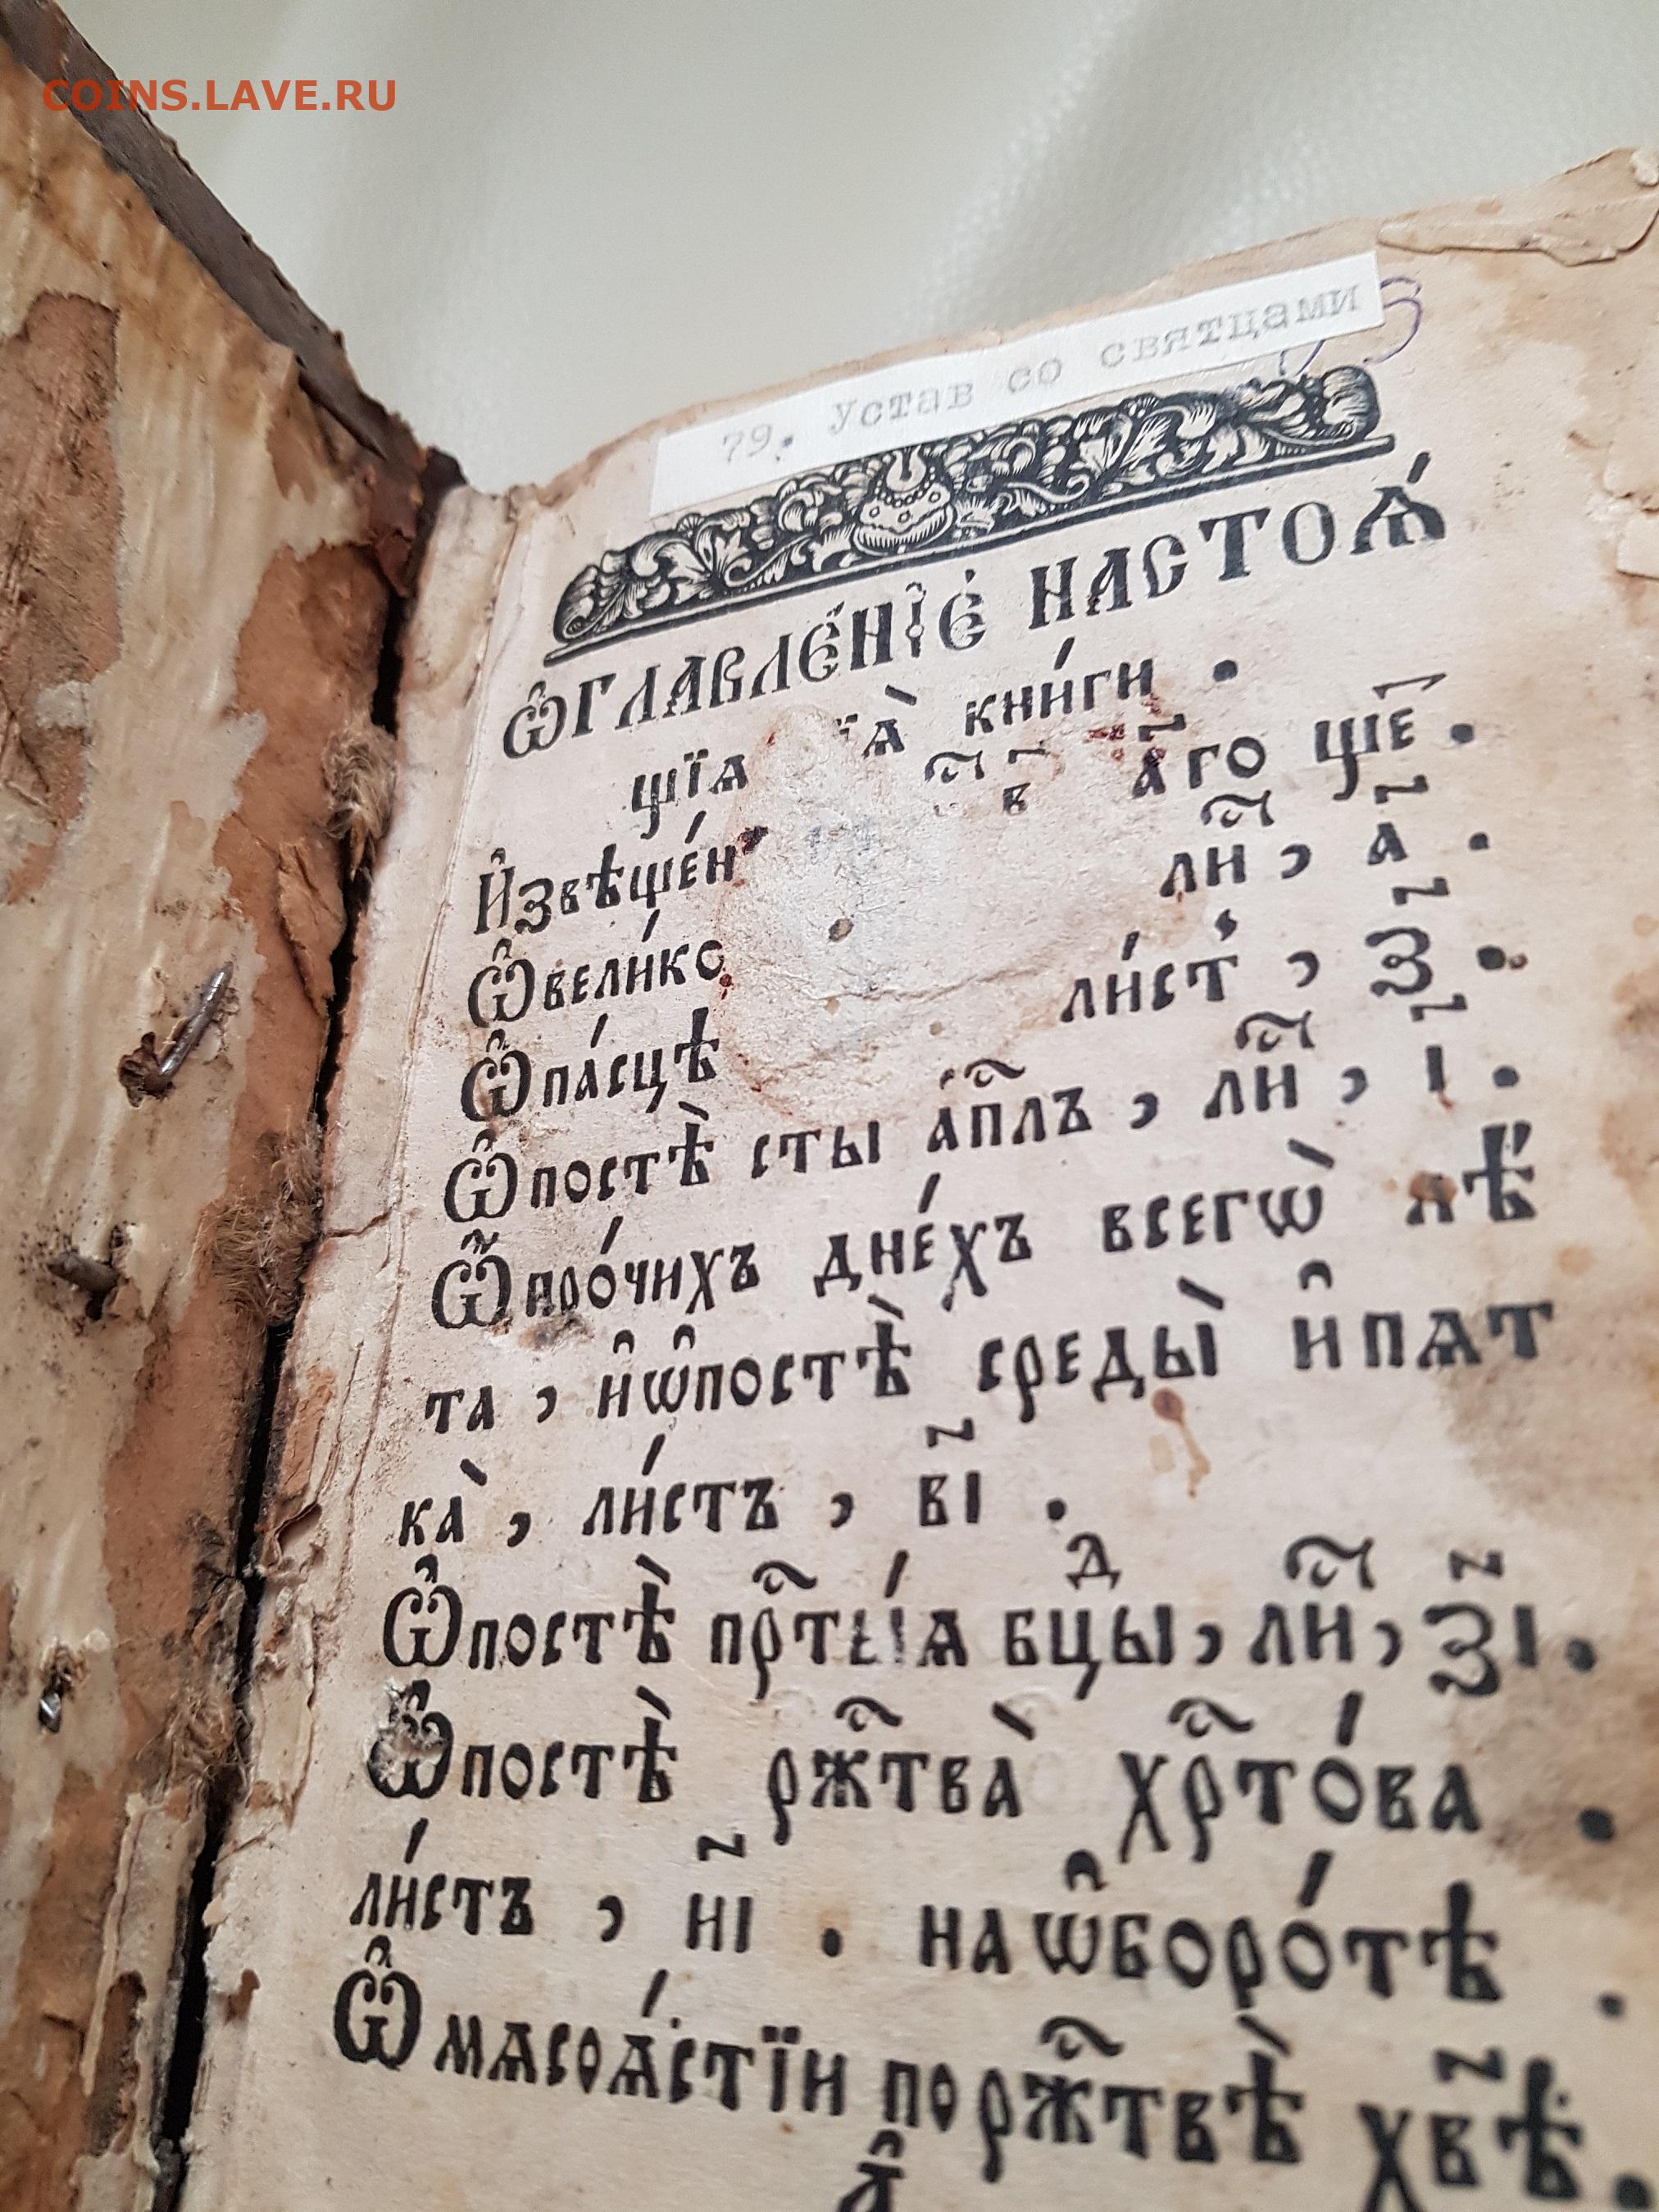 COINS.LAVE.RU
79. Устав со святцами
Ѡ҆ГЛАВЛЕ́НЇЕ НАСТОѦ́
щїѧ кни́ги .
а҃го ще .
Ѡ҆вели́ко ли҇ , а҃ .
Ѡ҆па́сцѣ ли́ст , з҃ .
Ѡ҆постѣ̀ сты а҆п҇лъ , ли҇ , і҃ .
Ѡ҆про́чихъ дне́хъ всегѡ̀ лѣ
та , и҆ѡ҆постѣ̀ среды̀ и҆пѧт
ка̀ , ли́стъ , в҃і .
Ѡ҆постѣ̀ пр҇ты́ѧ бцⷣы , ли҇ , з҃і .
Ѡ҆постѣ̀ рж҇тва̀ хр҇то́ва .
ли́стъ , и҃і . наѡ҆боро́тѣ .
Ѡ҆мѧсоѧ́стїи порж҇твѣ̀ хв҃ѣ .